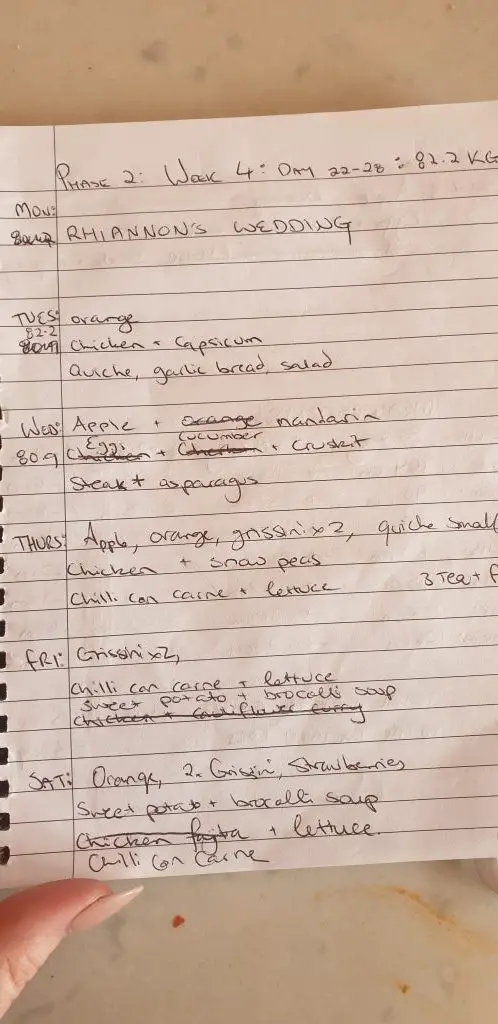 PHASE 2: WEEK 4: DAY 22-28: 82.2 KG
MON:
RHIANNON'S WEDDING
TUES: orange
82.2
80.9 Chicken + Capsicum
Quiche, garlic bread, salad
WED: Apple + orange mandarin
Eggs cucumber
80.9 Chicken + + Cruskit
Steak + asparagus
THURS: Apple, orange, grissini x 2, quiche small
Chicken + snow peas
Chilli con carne + lettuce 3 Tea +
FRI: Grissini x2,
Chilli con carne + lettuce
Sweet potato + brocalli soup
Chicken + cauliflower curry
SAT: Orange, 2x Grissin, Strawberries
Sweet potato + brocalli soup
Chicken fajita + lettuce.
Chilli con Carne